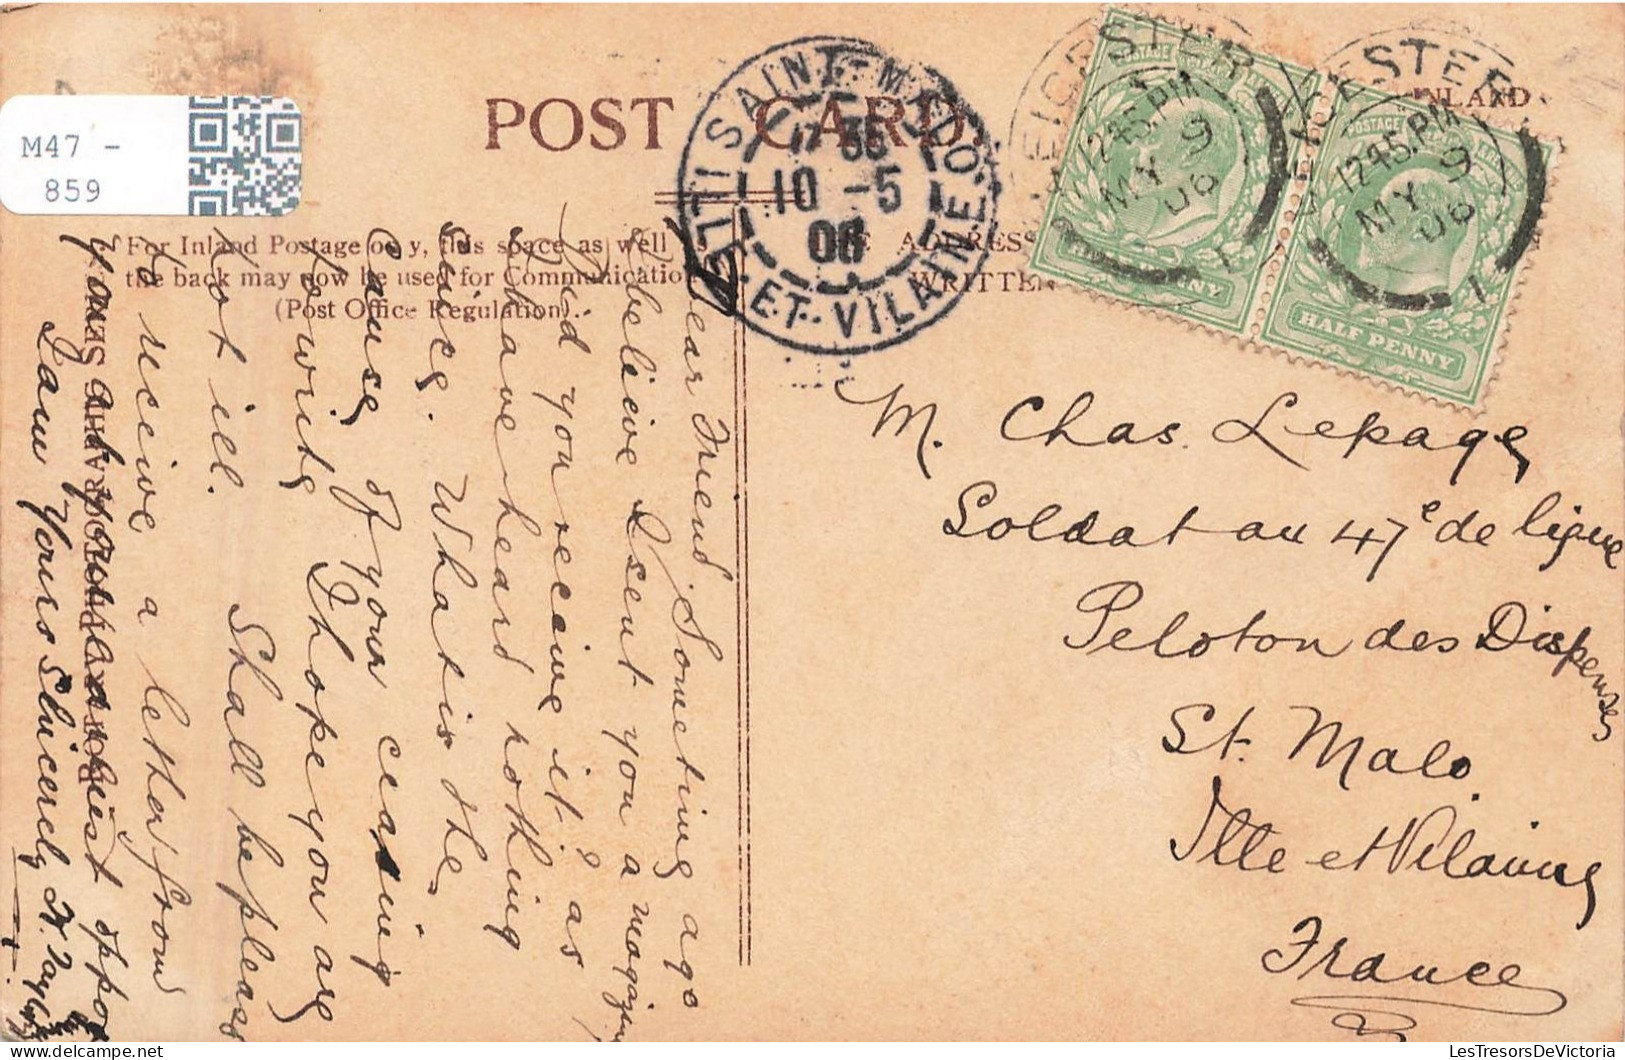 M47 -
859
POST CARD.
INLAND
For Inland Postage only, this space as well as
the back may now be used for Communication
(Post Office Regulation).
THE ADDRESS
WRITTEN
SAINT-MALO
10 -5
06
ILLE-ET-VILAINE
LEICESTER
12.45.PM
MY 9
06
1
LEICESTER
12.45.PM
MY 9
06
1
POSTAGE
HALF PENNY
POSTAGE
HALF PENNY
M. Chas. Lepage
Soldat au 47e de ligne
Peloton des Dispenses
St. Malo.
Ille et Vilaine
France
Dear Friend Sometime ago
I believe I sent you a magazine
Did you receive it? as
I have heard nothing
since. What is the
cause of your ceasing
to write I hope you are
not ill. Shall be pleased
to receive a letter from
you at your earliest oppor
I am Yours Sincerely H. Taylor